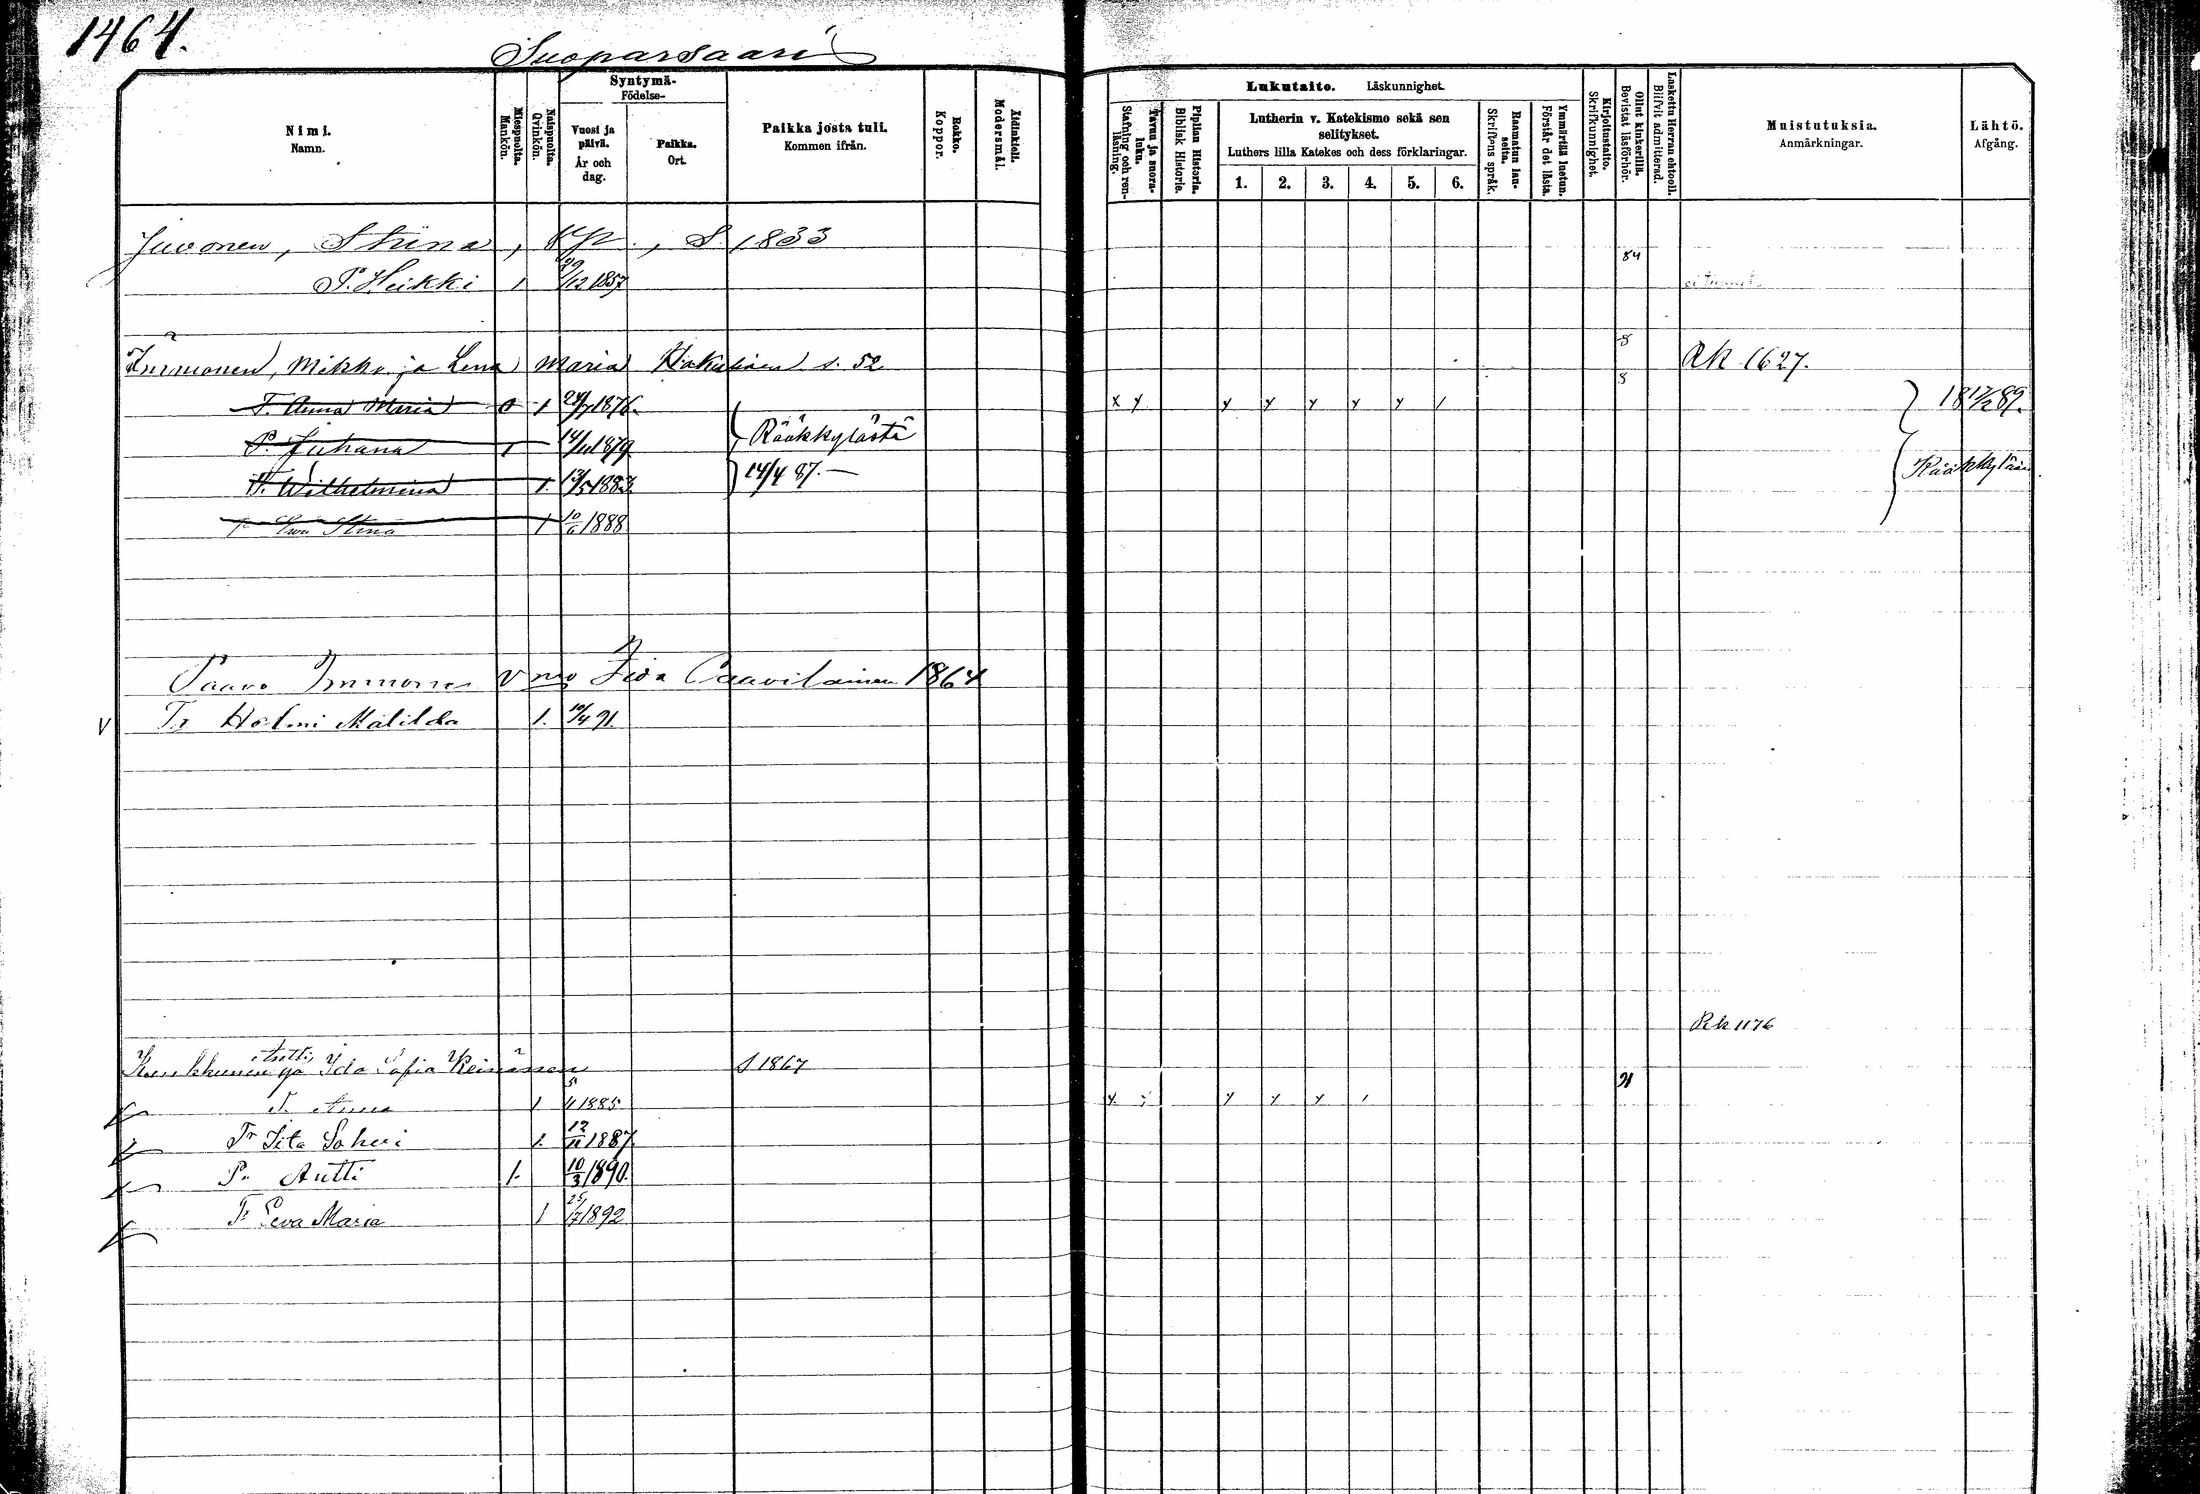 1464.
Suoparsaari
Nimi.
Namn.
Miespuolta.
Mankön.
Naispuolta.
Qvinkön.
Syntymä-
Födelse-
Vuosi ja päivä.
År och dag.
Paikka.
Ort.
Paikka josta tuli.
Kommen ifrån.
Rokko.
Koppor.
Äidinkieli.
Modersmål.
Lukutaito. Läskunnighet.
Tavuu ja suora-luku.
Stafning och ren-läsning.
Piplian Historia.
Biblisk Historie.
Lutherin v. Katekismo sekä sen selitykset.
Luthers lilla Katekes och dess förklaringar.
1. 2. 3. 4. 5. 6.
Raamatun lau-seita.
Skriftens språk.
Ymmärtää luetun.
Förstår det lästa.
Kirjoitustaito.
Skrifkunnighet.
Ollut kinkerillä.
Bevistat läsförhör.
Laskettu Herran ehtooll.
Blifvit admitterad.
Muistutuksia.
Anmärkningar.
Lähtö.
Afgång.
Juvonen, Stiina, S. 1833
P. Heikki 1 29/12 1857 84
Immonen, Mikko ja Lena Maria s. 52 8 RK 1627.
T. Anna Maria 1 24/7 1876. x y y y y y y 1 8 18 17/2 89.
P. Juhana 1 14/11 1879 Rääkkylästä
T. Wilhelmina 1. 13/5 1883 14/4 87. Rääkkylään
T. Eva Stina 1 10/6 1888
Paavo Immonen Vmo Iida Paavilainen 1864
V Tr Helmi Matilda 1. 10/4 91.
Rk 1176
Antti ja Ida Sofia Keinänen S 1867
T. Anna 1 5/11 1885 91
Tr Iita Sohvi 1. 12/11 1887
P. Antti 1. 10/3 1890.
Tr Eeva Maria 1 25/7 1892